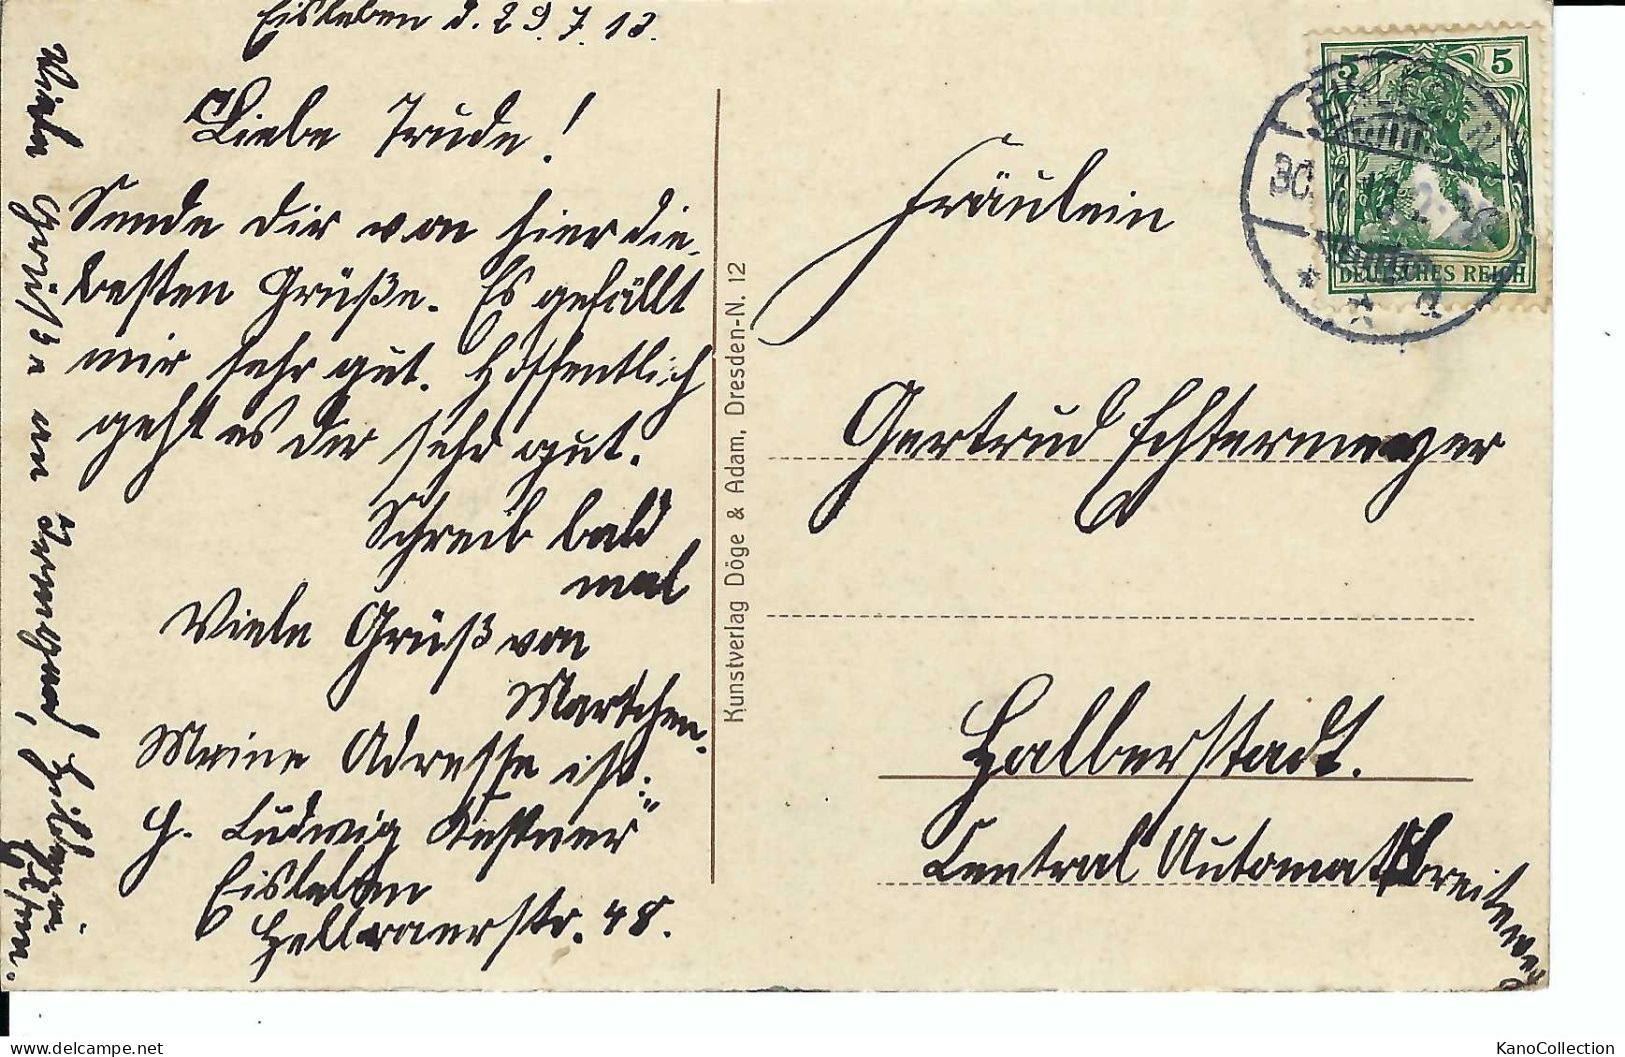 Eisleben d. 29.7.13.
Liebe Trude!
Sende dir von hier die
besten Grüße. Es gefällt
mir sehr gut. Hoffentlich
geht es dir sehr gut.
Schreib bald
mal
Viele Grüß von
Martchen.
Meine Adresse ist:
H. Ludwig Küstner"
Eisleben
Hellraerstr. 48.
Viele Grüße an
Kunstverlag Döge & Adam, Dresden-N. 12
5 5
DEUTSCHES REICH
EISLEBEN
d
Fräulein
Gertrud Echtermeyer
Halberstadt.
Central Automat Breiteweg
KanoCollection
www.delcampe.net